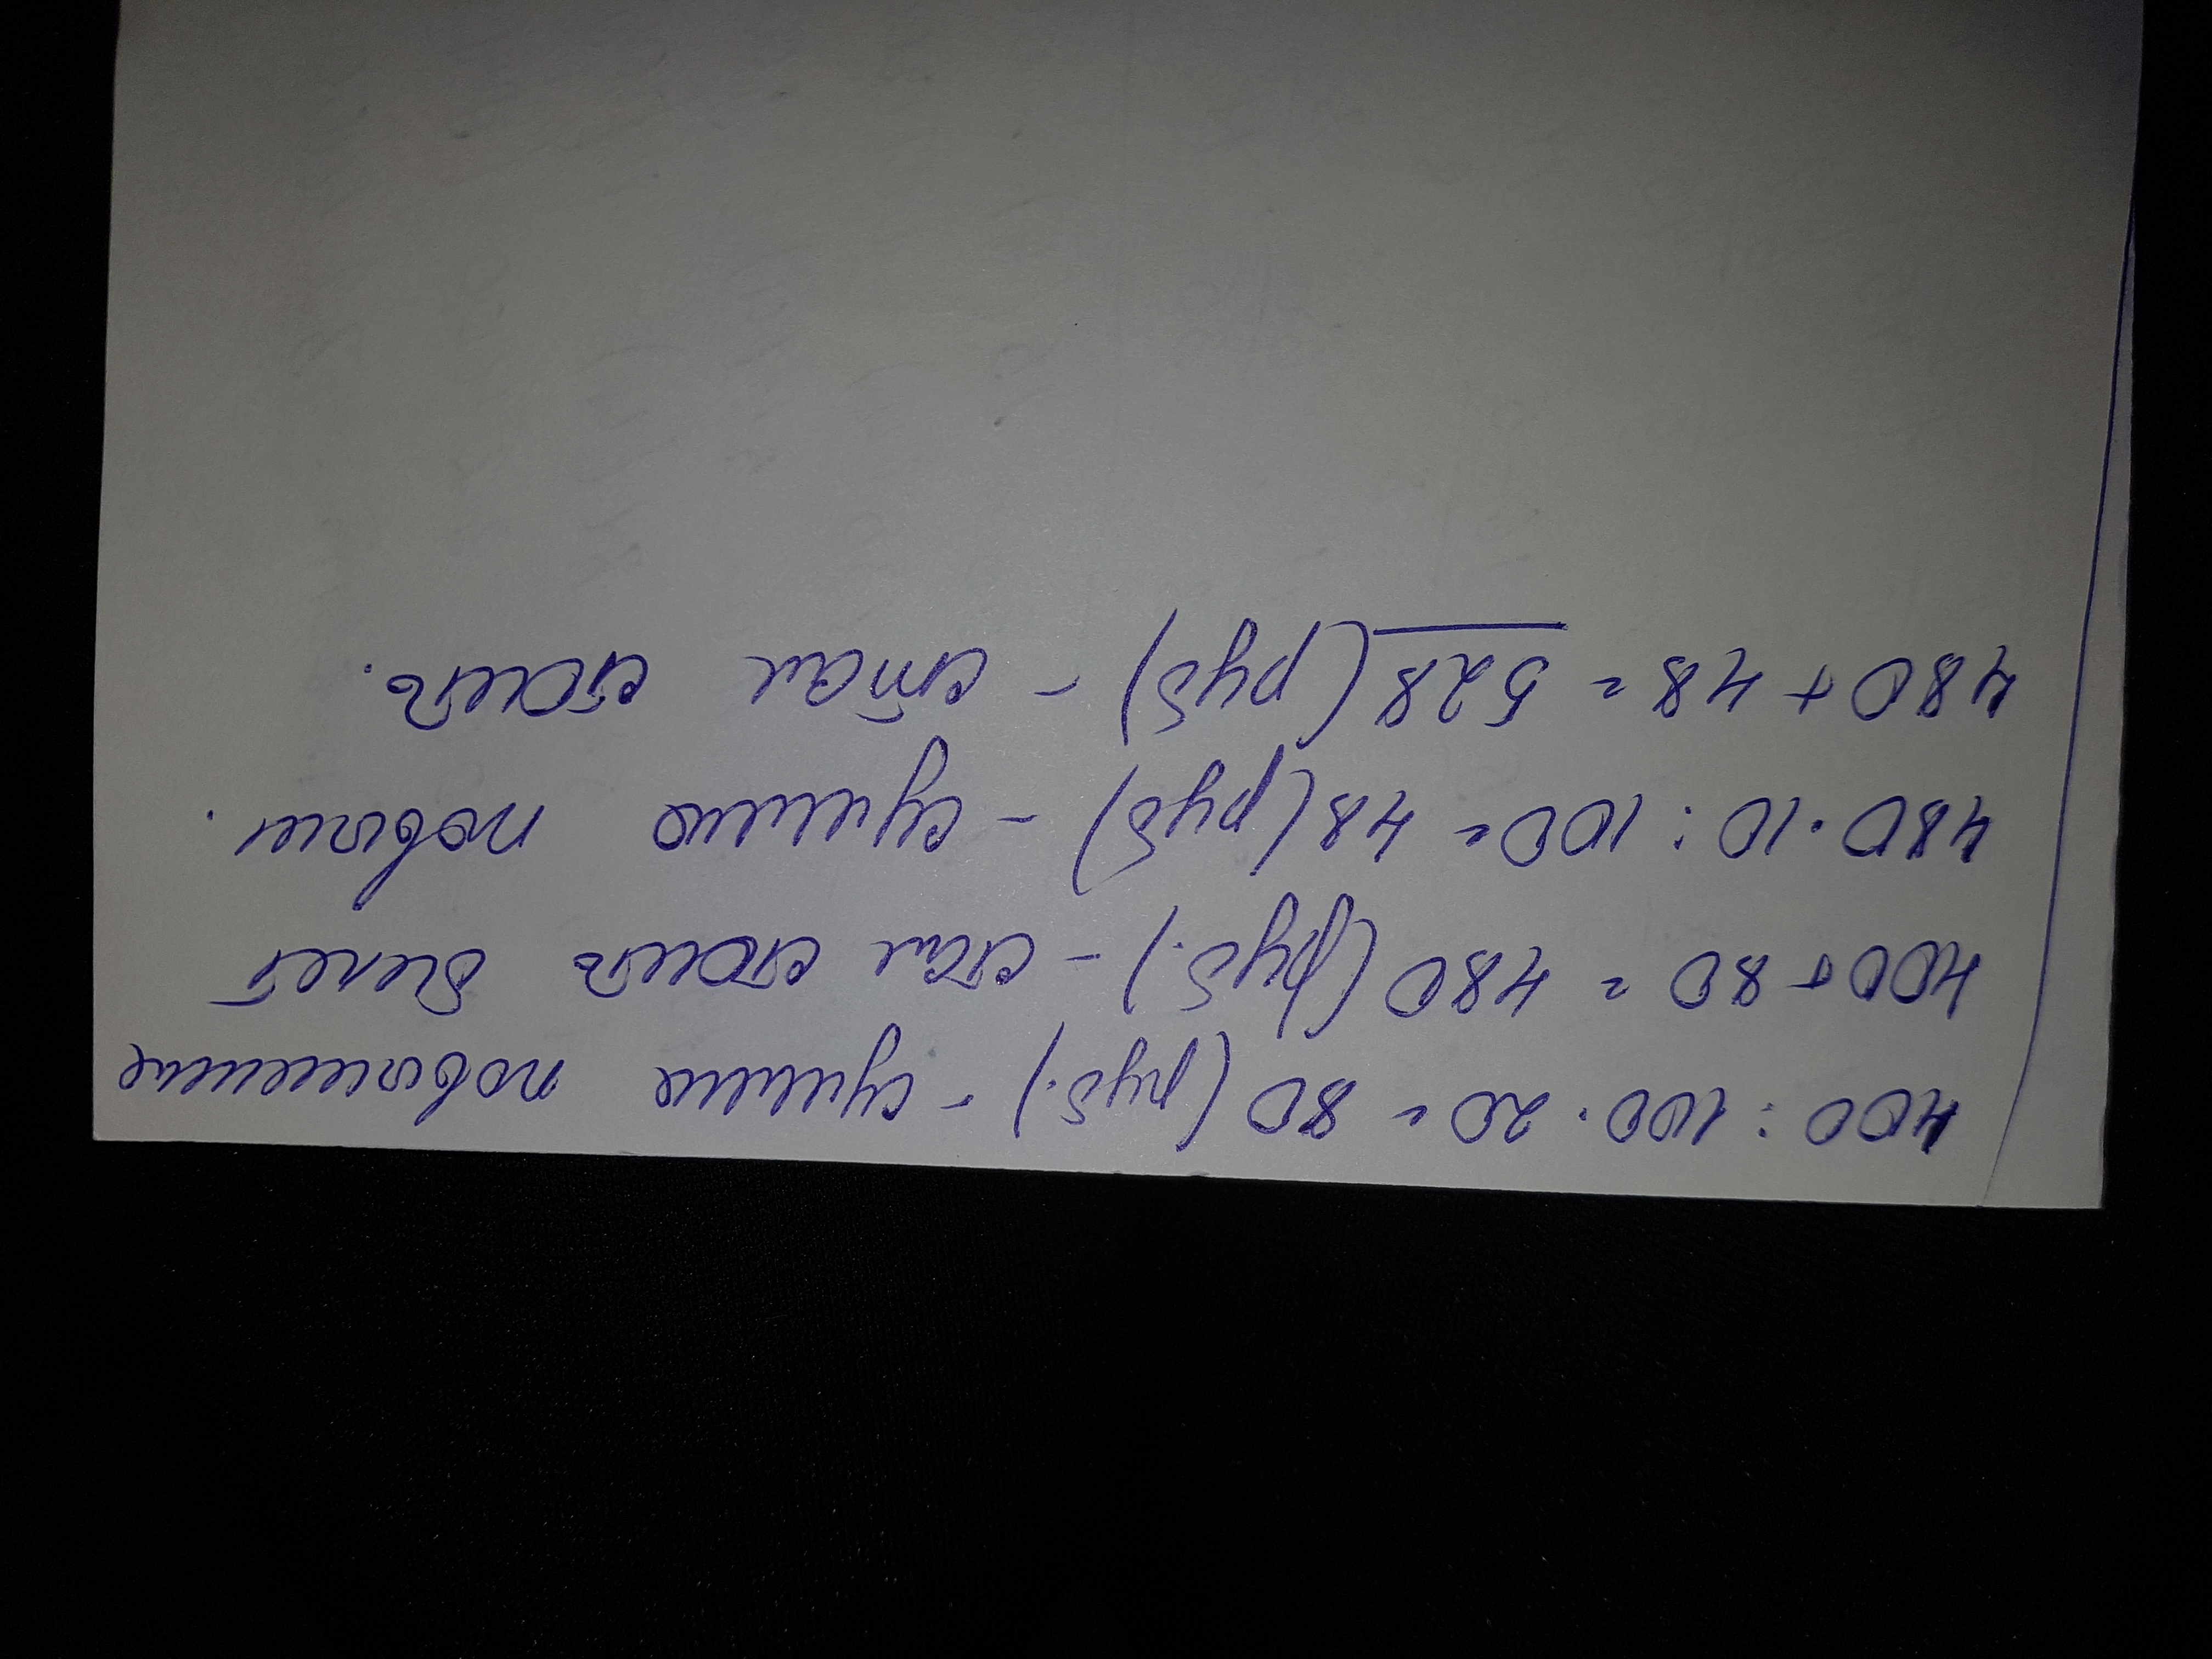 400 : 100 · 20 = 80 (руб.) - сумма повышение
400 + 80 = 480 (руб.) - стал стоить билет
480 · 10 : 100 = 48 (руб) - сумма повыш.
480 + 48 = 528 (руб) - стал стоить.